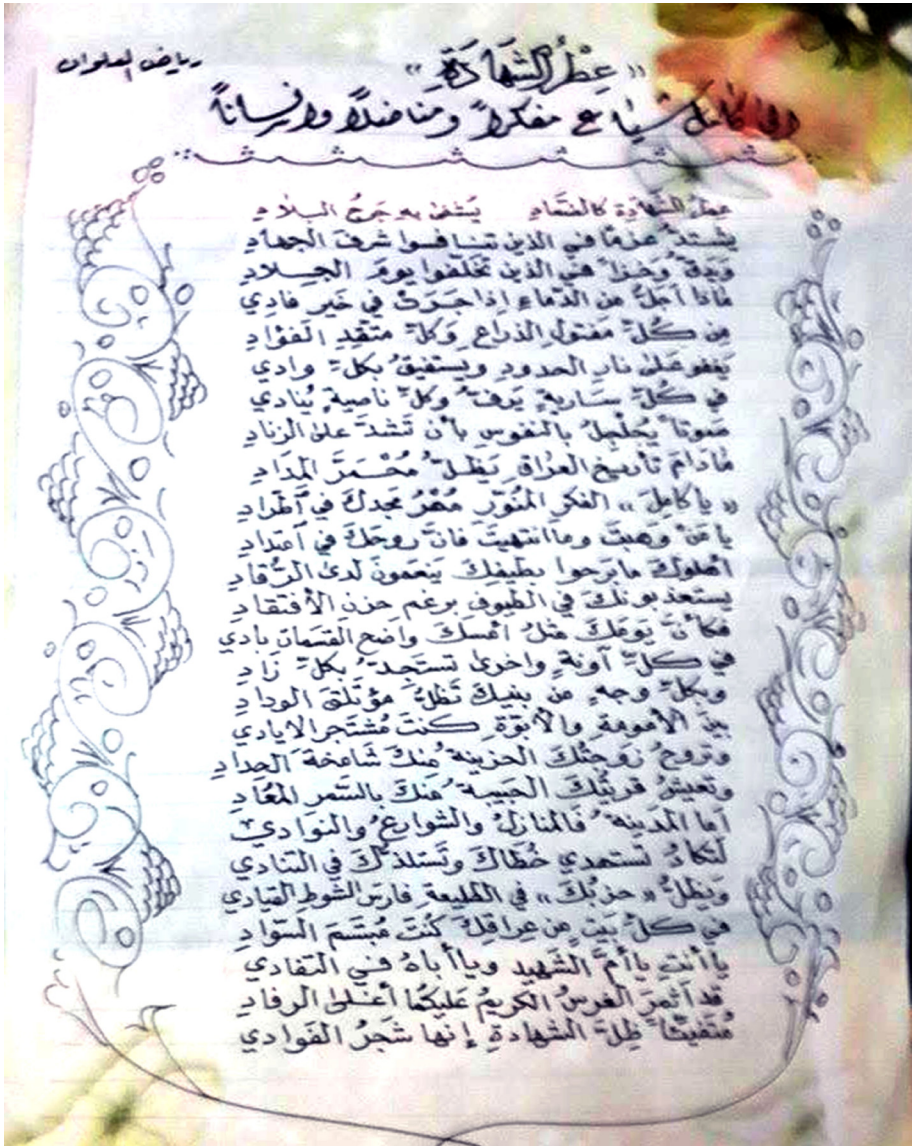 «عِطْرُ الشَّهَادَةِ»
رياض العلوان
الى كامل شياع مفكراً ومناضلاً وإنساناً
عِطرُ الشَّهادَةِ كالضَّمَادِ يُشفى بهِ جرحُ البلادِ
يشتدُّ عزمًا في الذين تنافسوا شرفَ الجهادِ
وَيدقُّ وَخزاً في الذين تخلَّفوا يومَ الجِلادِ
ماذا أجلُّ من الدِّماءِ إذا جَرَتْ في خَيرِ فادي
مِن كُلِّ مفتولِ الذراعِ وَكلِّ متقِدِ الفؤادِ
يَغفو عَلى نارِ الحدودِ ويستفيقُ بكلِّ وادي
في كُلِّ ساريةٍ يَرفُّ وكلِّ ناصيةٍ يُنادي
صَوتاً يُجلجِلُ بالنفوسِ بأن تَشدَّ على الزنادِ
مادامَ تأريخُ العراقِ يَظلُّ مُحْمَرَّ المِدَادِ
«ياكامِلَ» الفكرِ المُنوَّرِ مُهْرُ مجدكَ في اطّرادِ
يا مَنْ وَهبتَ وما انتهيتَ فانَّ روحَكَ في امتدادِ
أهلوكَ مابَرحوا بطيفِكَ يَنعمونَ لدى الرُّقادِ
يستعذبونكَ في الطيوفِ برغم حزنِ الأفتقادِ
فكأنَّ يَومَكَ مثلُ أمسكَ واضح القسماتِ بادي
في كلِّ آونةٍ واخرى تستَجِدُّ بكلِّ زَادِ
وبكلِّ وجهٍ من بنيكَ تَظلُّ مؤتَلِقَ الودادِ
بينَ الأمومةِ والأبوّةِ كنتَ مُشتَجرَ الايادي
وتروحُ زوجتُكَ الحزينةُ مِنكَ شامخةَ الحِدادِ
وتعيشُ قريتُكَ الحَبيبةُ مِنكَ بالسَّمرِ المُعَادِ
أما المدينةُ فالمنازلُ والشوارعُ والنوادي
لتكادُ تستهدي خُطاكَ وتَستلذُّكَ في التنادي
وَيظلُّ «حزبُكَ» في الطليعةِ فارسَ الشوطِ القيادي
في كلِّ بَيتٍ من عِراقِكَ كُنتَ مُبتسمَ السَّوادِ
يا أنتِ يا أمَّ الشَّهيدِ ويا أباهُ في التفادي
قد أثمرَ الغرسُ الكريمُ عَليكُما أغلى الرفادِ
مُتفيئاً ظِلَّ الشهادةِ إنها شَجَرُ الفوادي